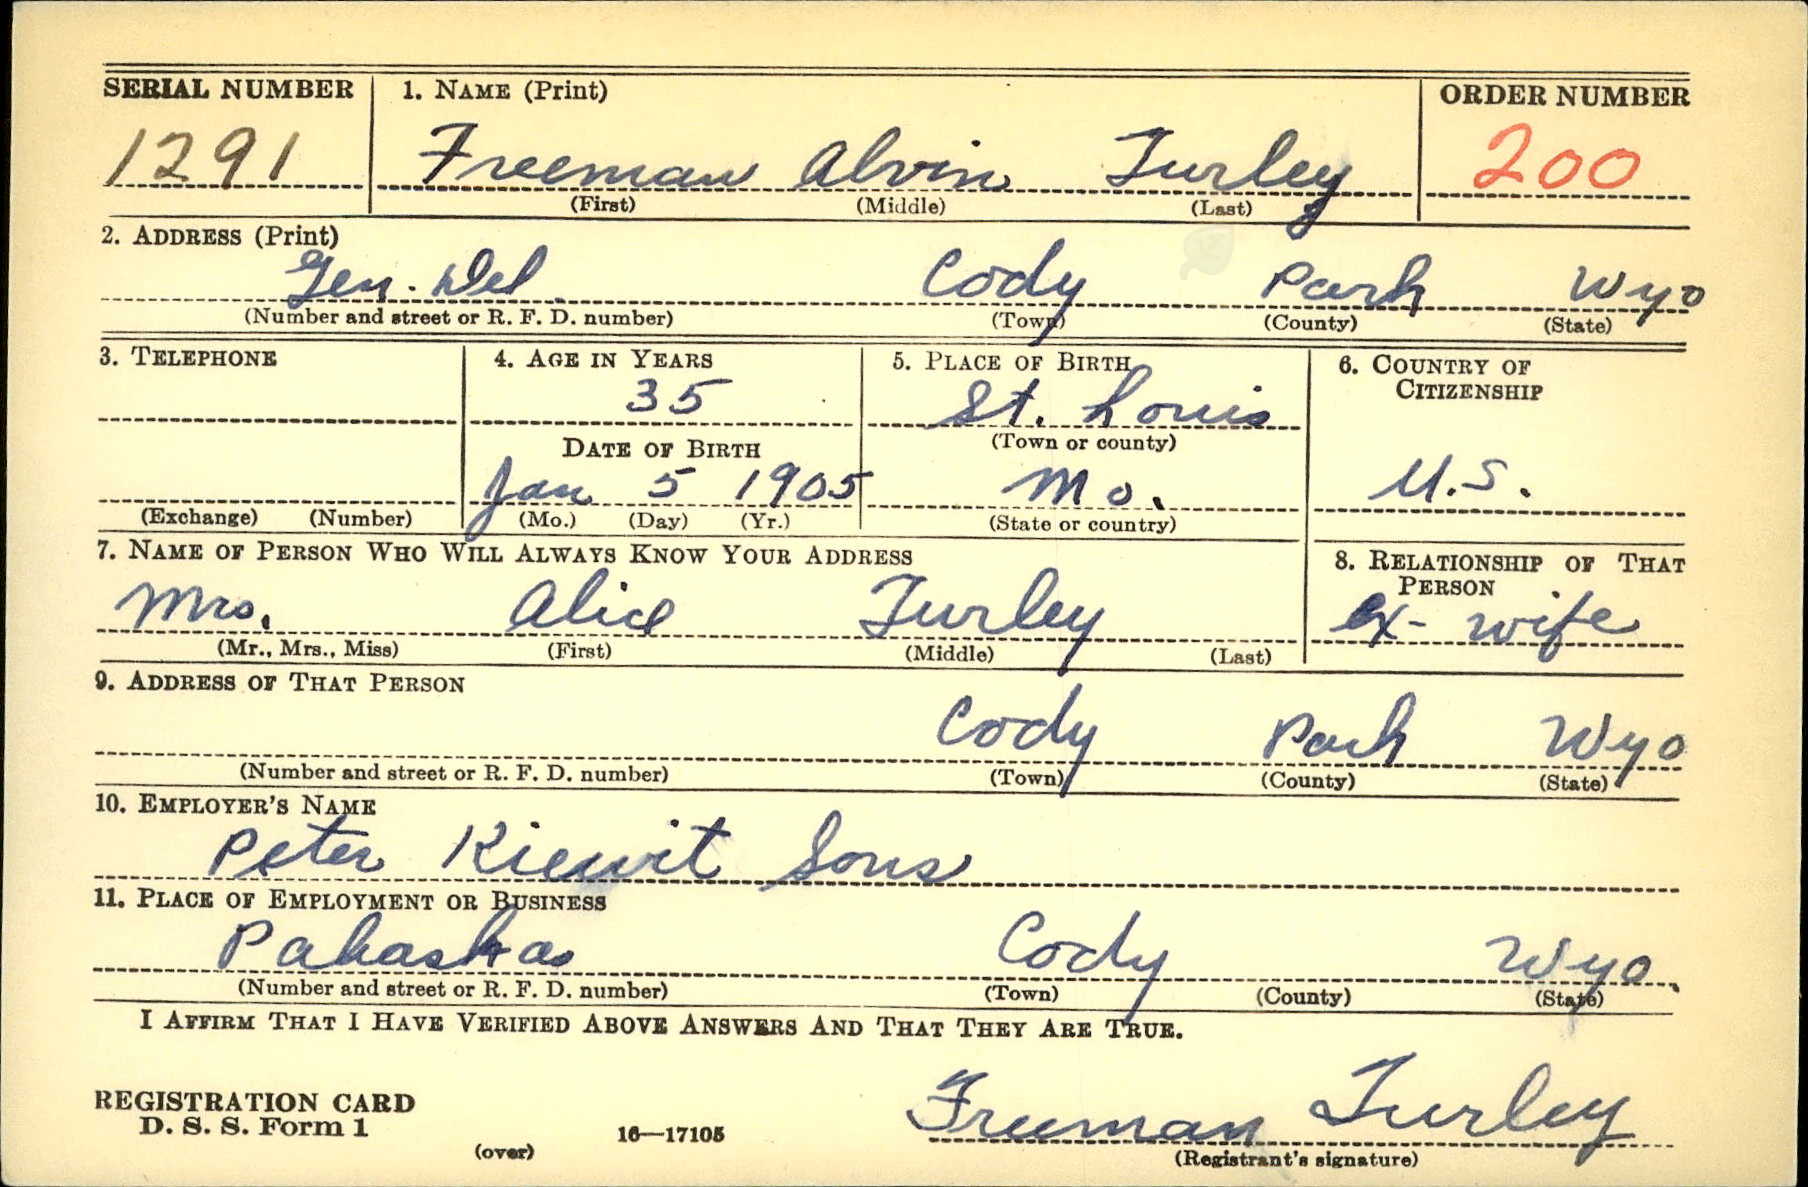 SERIAL NUMBER 1. NAME (Print) ORDER NUMBER
1291 Freeman Alvin Turley 200
(First) (Middle) (Last)
2. ADDRESS (Print)
Gen. Del. Cody Park Wyo
(Number and street or R. F. D. number) (Town) (County) (State)
3. TELEPHONE 4. AGE IN YEARS 5. PLACE OF BIRTH 6. COUNTRY OF
CITIZENSHIP
35 St. Louis
(Town or county)
DATE OF BIRTH
Jan 5 1905 Mo. U.S.
(Exchange) (Number) (Mo.) (Day) (Yr.) (State or country)
7. NAME OF PERSON WHO WILL ALWAYS KNOW YOUR ADDRESS 8. RELATIONSHIP OF THAT
PERSON
Mrs. Alice Turley ex-wife
(Mr., Mrs., Miss) (First) (Middle) (Last)
9. ADDRESS OF THAT PERSON
Cody Park Wyo
(Number and street or R. F. D. number) (Town) (County) (State)
10. EMPLOYER'S NAME
Peter Kiewit Sons
11. PLACE OF EMPLOYMENT OR BUSINESS
Pahaska Cody Wyo.
(Number and street or R. F. D. number) (Town) (County) (State)
I AFFIRM THAT I HAVE VERIFIED ABOVE ANSWERS AND THAT THEY ARE TRUE.
REGISTRATION CARD
D. S. S. Form 1 Freeman Turley
(over) 16—17105 (Registrant's signature)